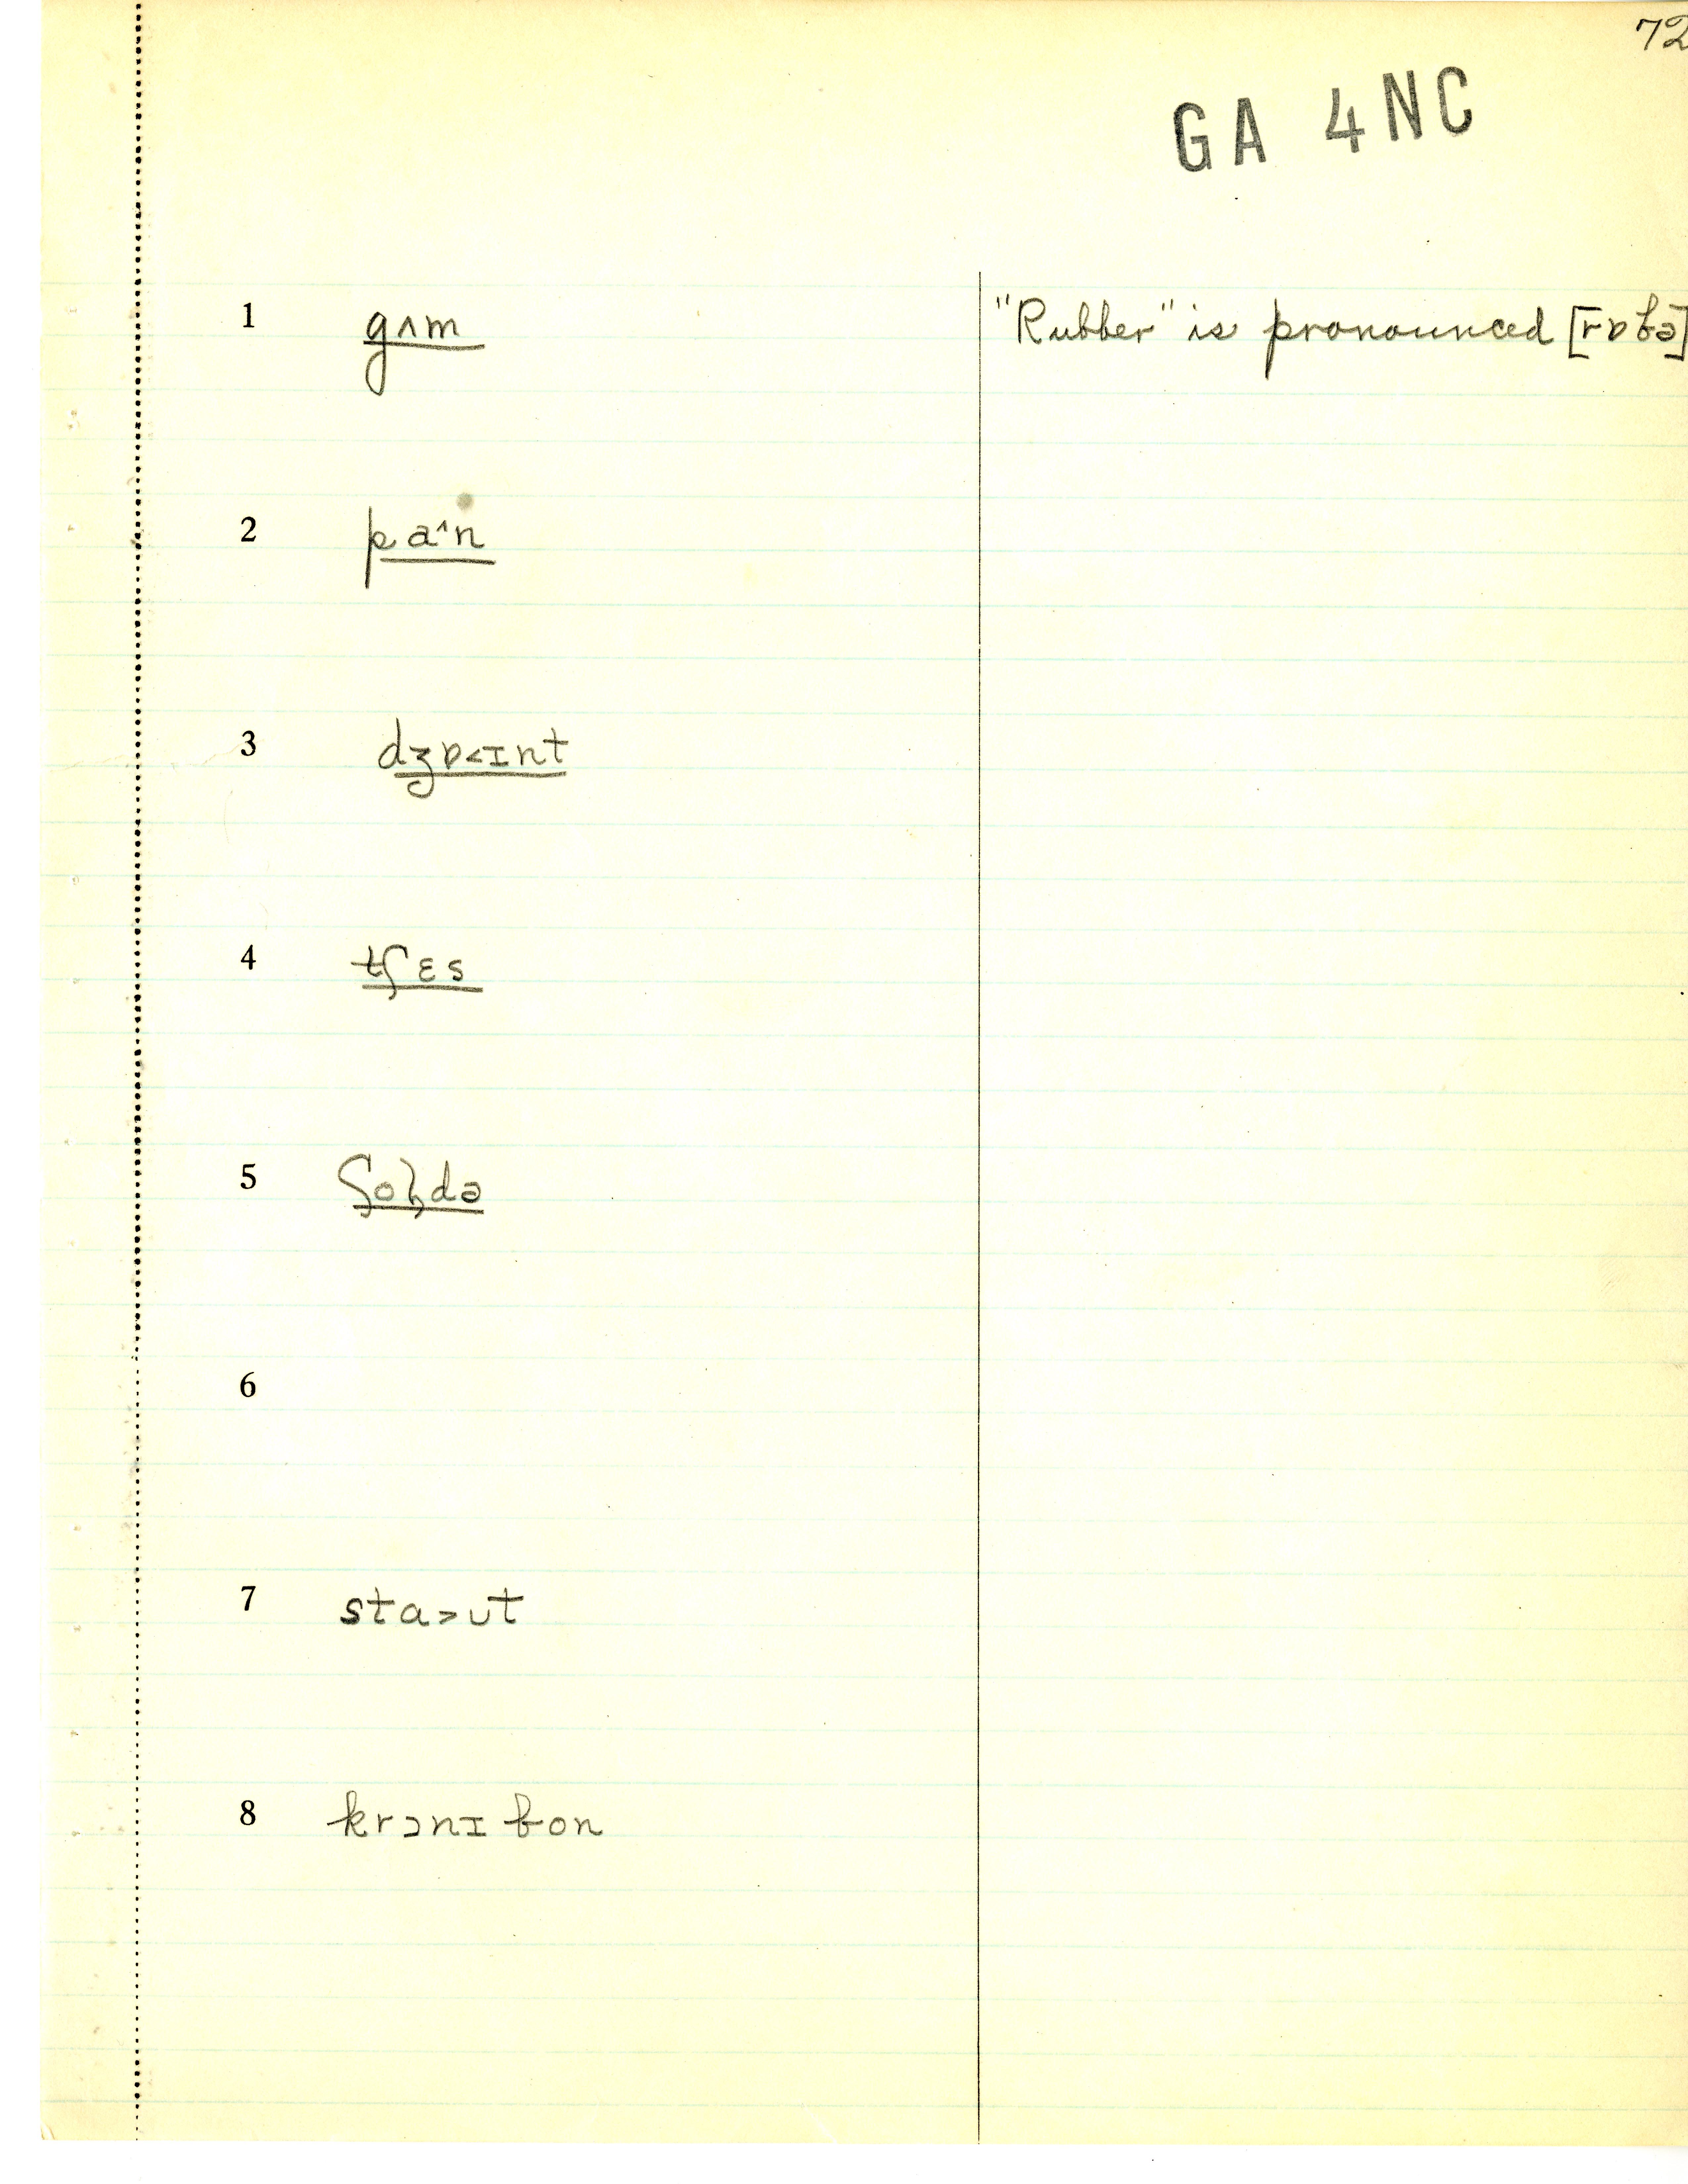 72
GA 4NC
1 gʌm "Rubber" is pronounced [rɒbə]
2 pa^n
3 dʒɒ<ɪnt
4 tʃɛs
5 ʃoɫdə
6
7 stɑ>ʊt
8 krɔnɪ bon